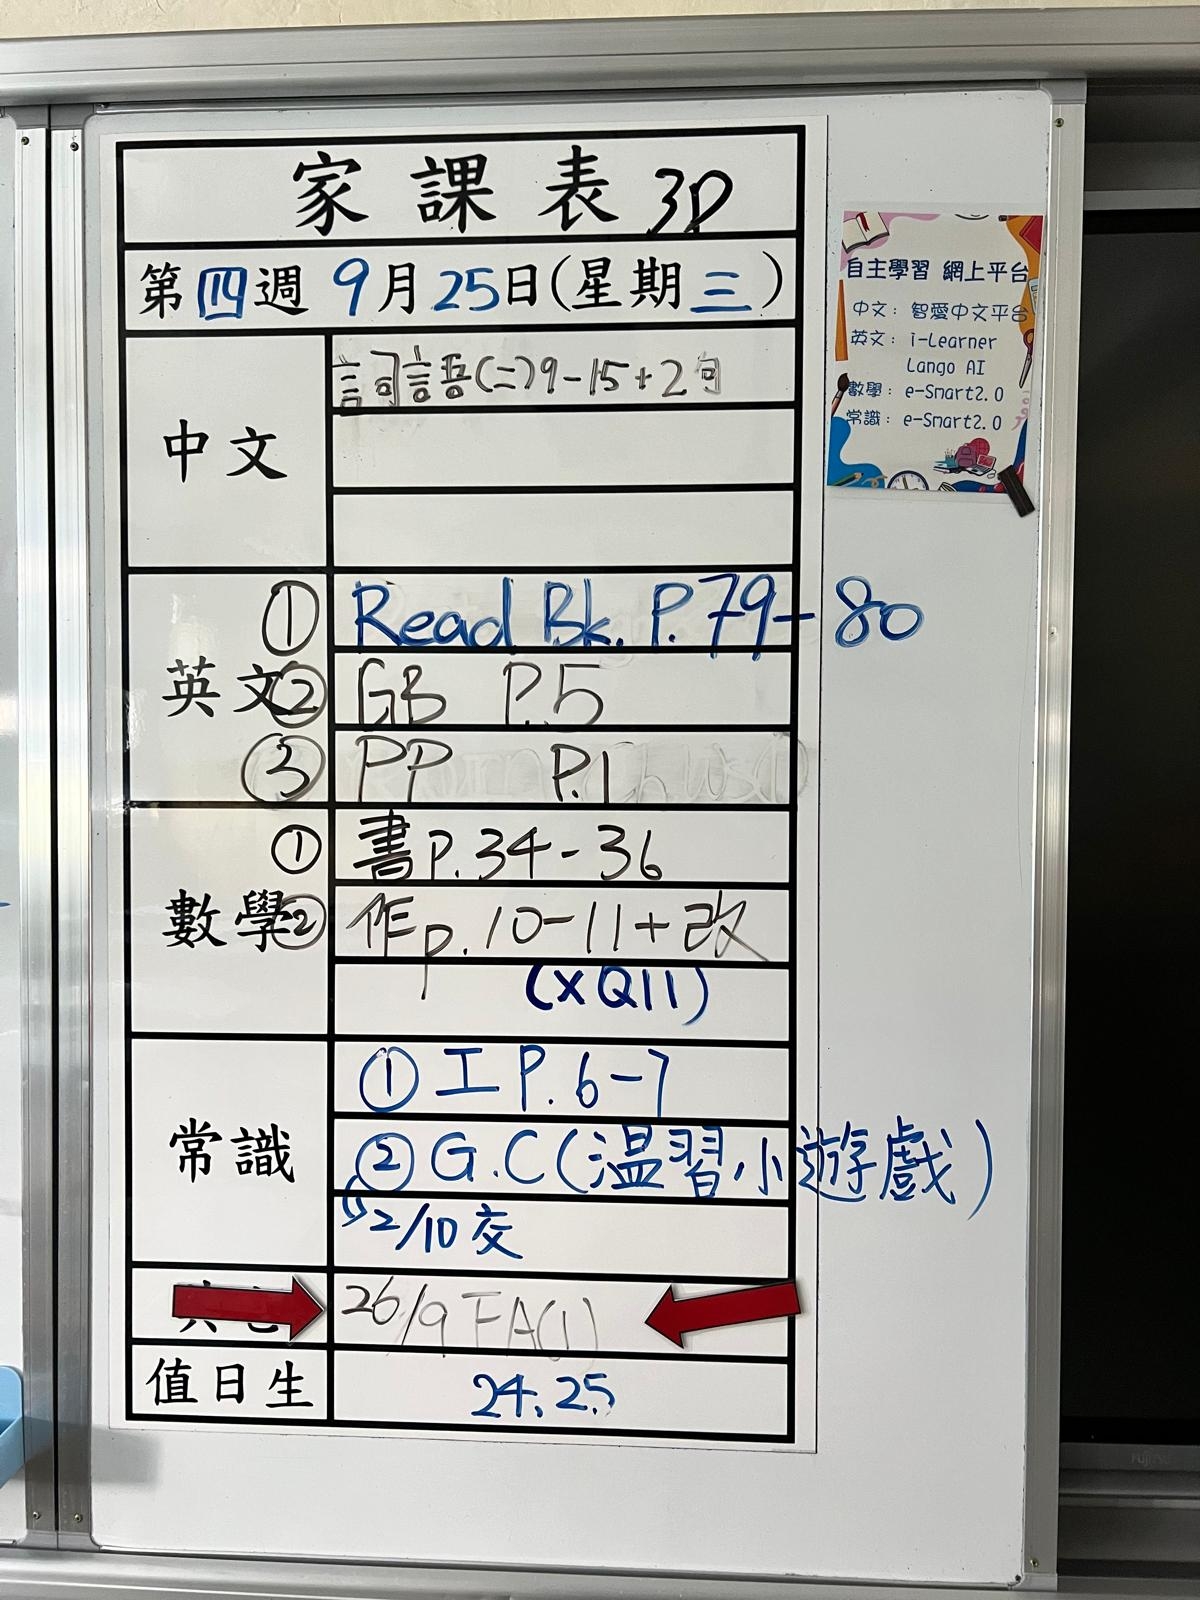 家課表 3D
第四週 9月25日(星期三)
中文
詞語(二)9-15+2句
英文
① Read Bk. P.79-80
② GB P.5
③ PP P.1
數學
① 書P.34-36
② 作p.10-11+改
(XQ11)
常識
① 工 P.6-7
② G.C(溫習小遊戲)
2/10交
26/9 FA(1)
值日生
24、25
自主學習 網上平台
中文：智愛中文平台
英文：i-Learner
Lango AI
數學：e-Smart2.0
常識：e-Smart2.0